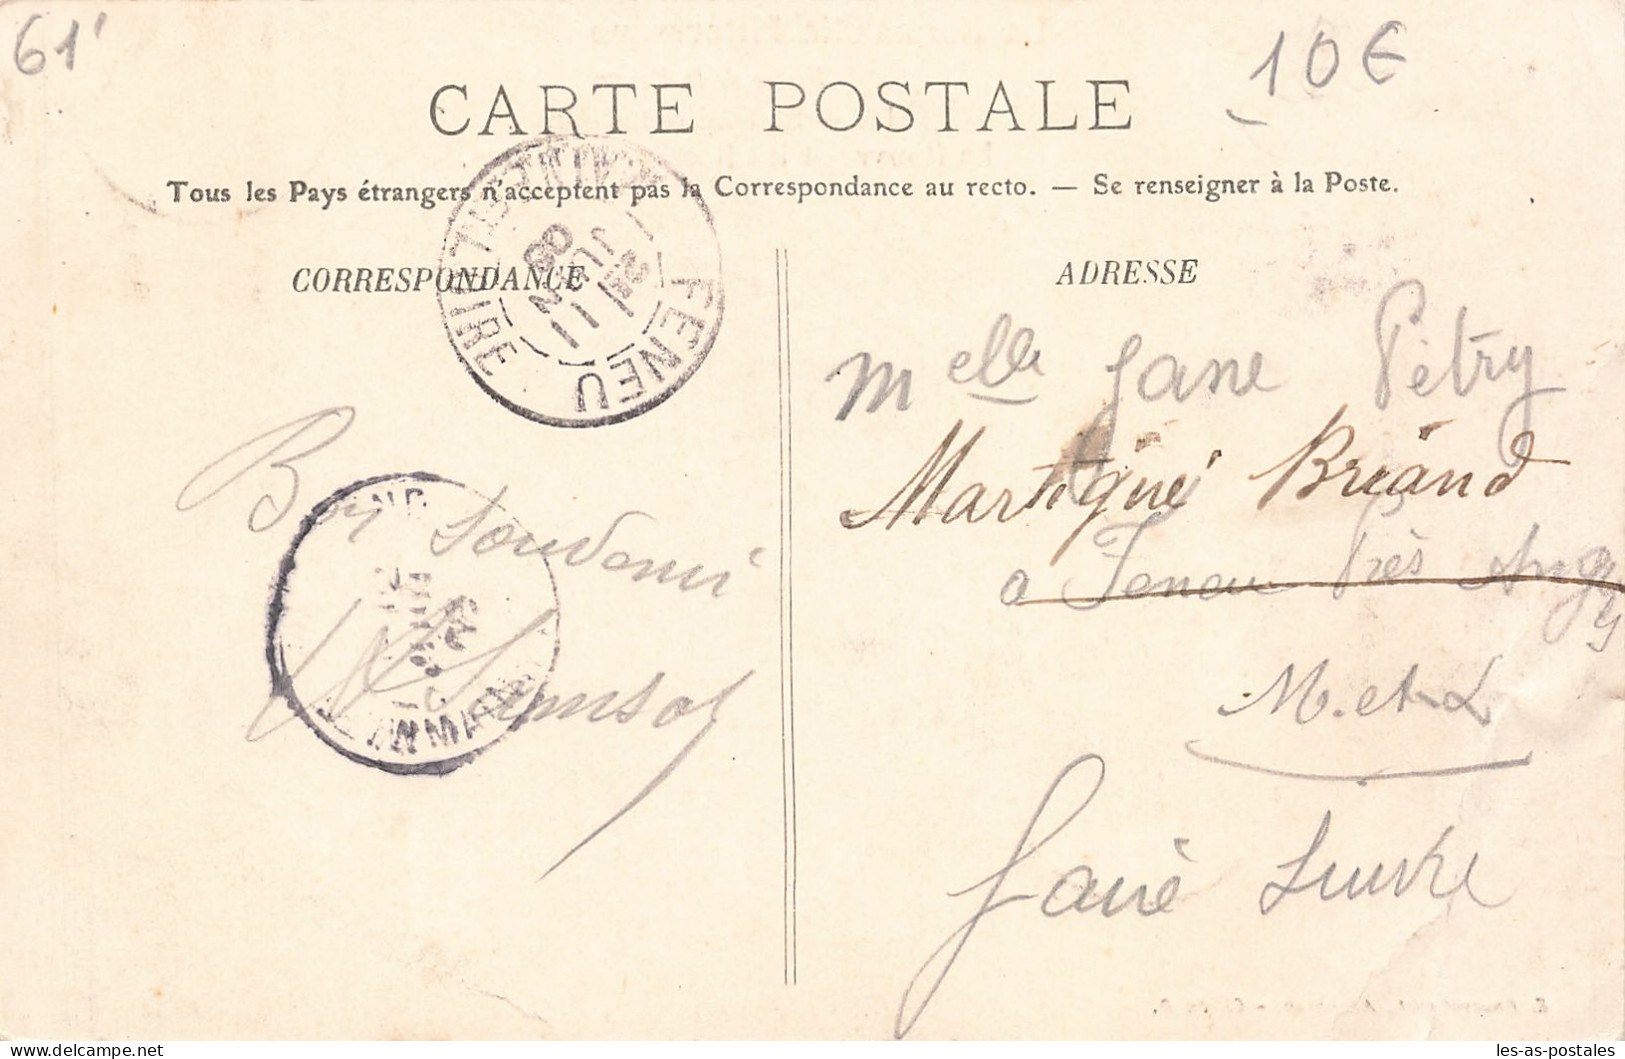 61'
10€
CARTE POSTALE
Tous les Pays étrangers n'acceptent pas la Correspondance au recto. — Se renseigner à la Poste.
CORRESPONDANCE
FENEU
MAINE ET LOIRE
11 JUIN 08
Bon Souvenir
ADRESSE
Melle Jane Pétry
Martigné Briand
a Feneu Près Angers
M. et L
Faire Suivre
les-as-postales